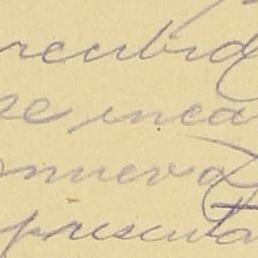 recibid
se inca
nueva
presenta